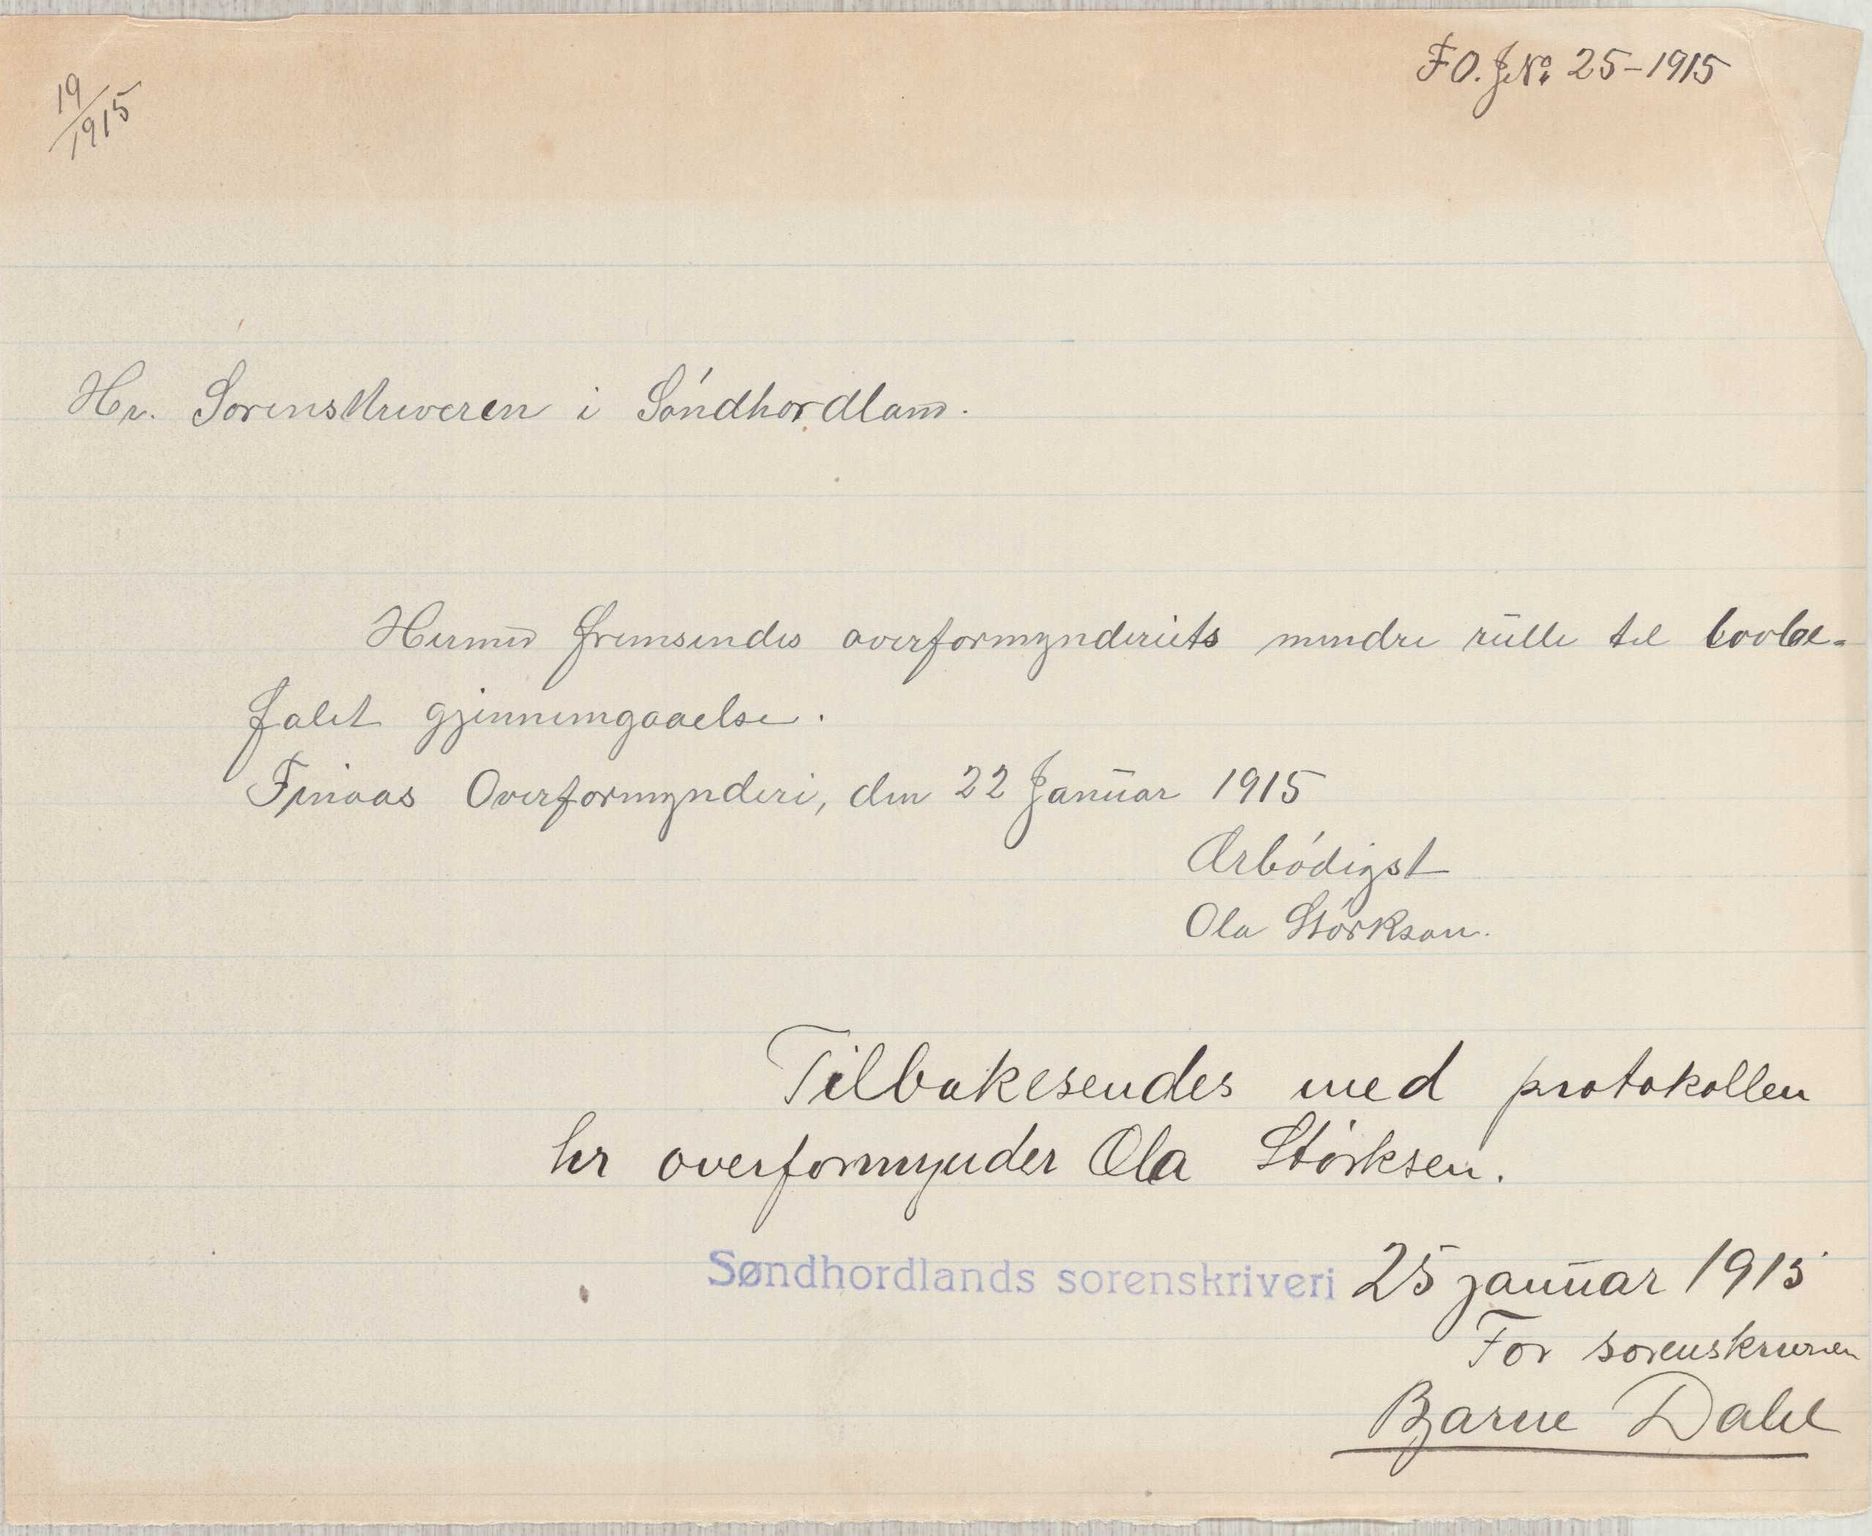 19/1915
FO. JNo. 25-1915
Hr. Sorenskriveren i Søndhordland.
Hermed fremsendes overformynderiets mindre rulle til lovbe-
falet gjennemgaaelse.
Finaas Overformynderi, den 22 Januar 1915
Ærbødigst
Ola Størkson.
Tilbakesendes med protokollen
hr overformynder Ola Størksen.
Søndhordlands sorenskriveri 25 januar 1915
For sorenskriveren
Bjarne Dahl